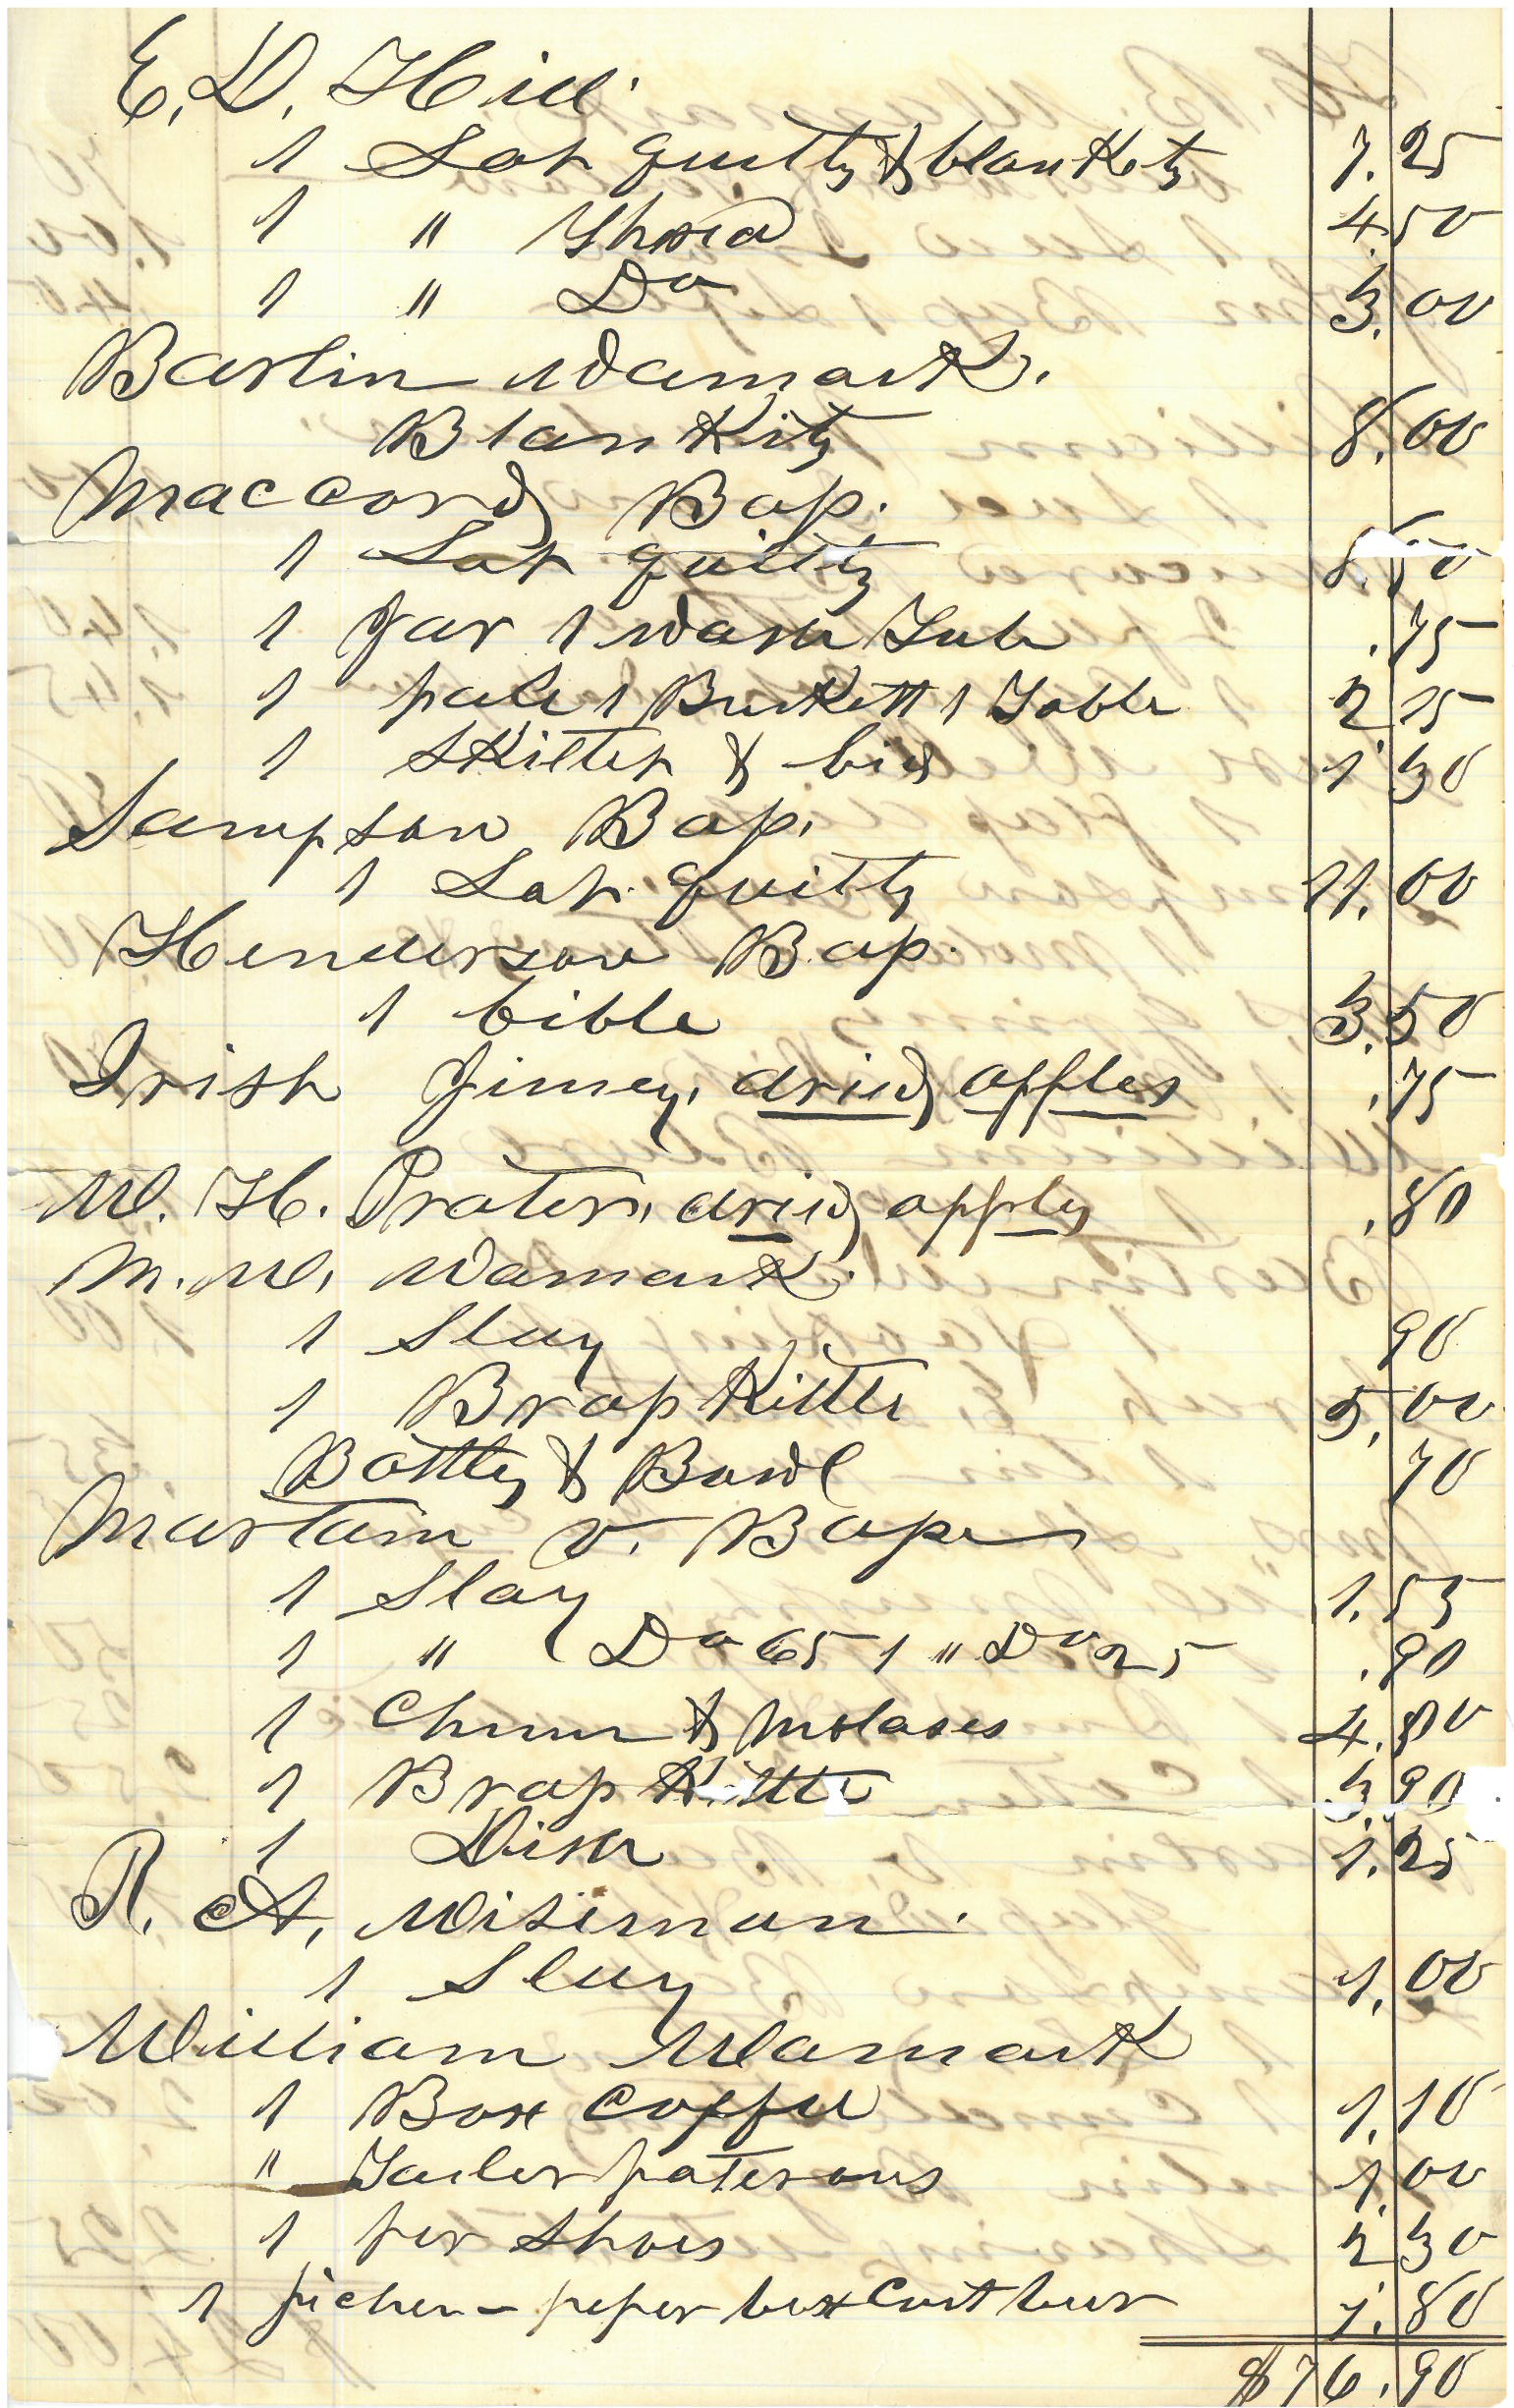 E. D. Hill
1 Lot quilts & blankets 7.25
1 " Thread 4.50
1 " Do 3.00
Bartlin Wamack.
Blankits 8.00
Maccord Bap.
1 Lot quilts 8.50
1 Jar 1 wash Tub .75
1 pale 1 Buckett 1 Table 2.15
1 Skillet & lid 1.30
Sampson Bap.
1 Lot quilts 11.00
Henderson Bap.
1 bible 3.50
Irish Jimey, dried apples .75
W. H. Prater, dried apples .80
M. W. Wamack.
1 Slay 90
1 Brass Kittle 5.00
Bottles & Bowl 70
Martain V. Bape
1 Slay 1.55
1 " Do 65 1 " Do 25 .90
1 Churn & Molases 4.80
1 Brass Kittle 3.90
1 Dish 1.25
R. A. Wiseman.
1 Slay 1.00
William Wamack
1 Box coffee 1.10
" Tailer paterons 1.00
1 per Shoes 2.30
1 picher - peper box 1.80
$76.90